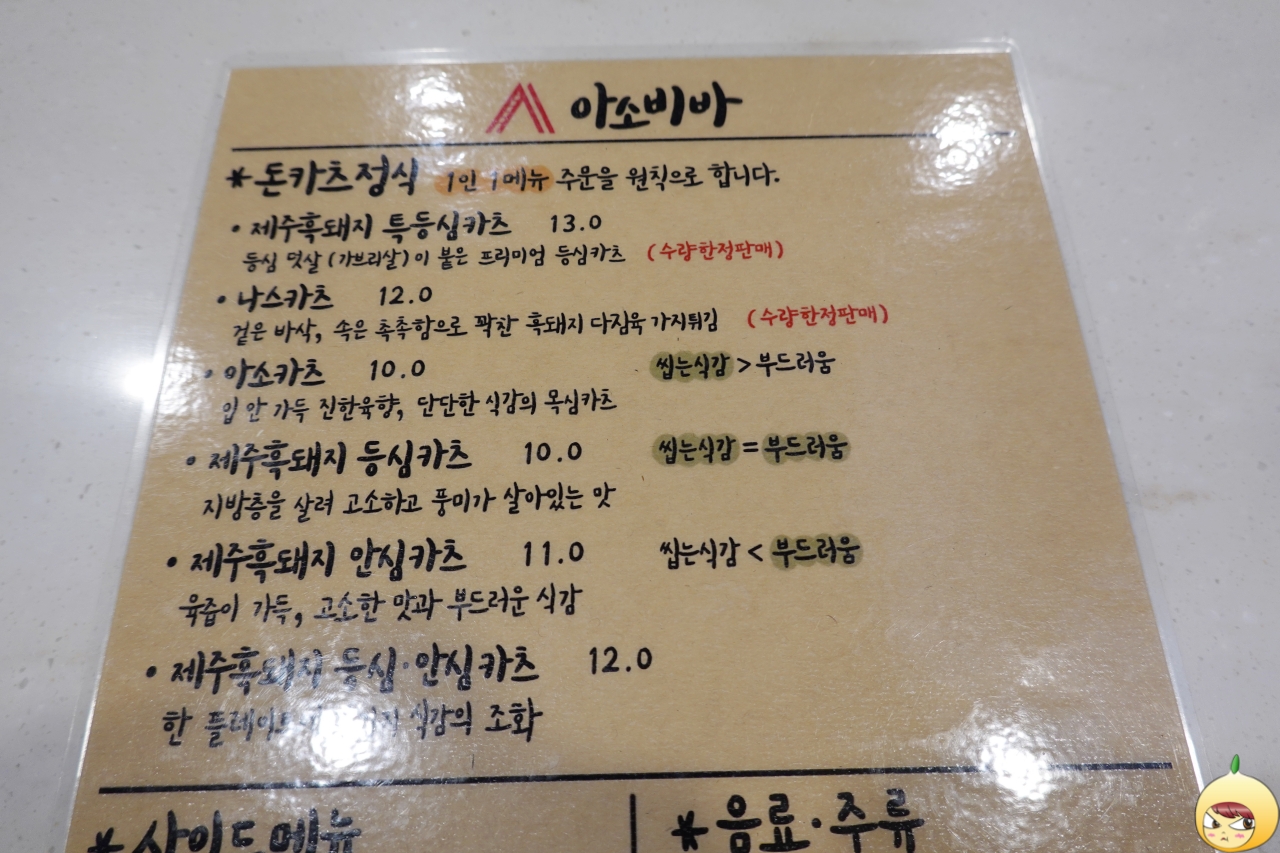 아소비바
*돈카츠정식 1인 1메뉴 주문을 원칙으로 합니다.
• 제주흑돼지 특등심카츠 13.0
등심 덧살(가브리살)이 붙은 프리미엄 등심카츠 (수량한정판매)
• 나스카츠 12.0
겉은 바삭, 속은 촉촉함으로 꽉찬 흑돼지 다짐육 가지튀김 (수량한정판매)
• 아소카츠 10.0 씹는식감 > 부드러움
입 안 가득 진한육향, 단단한 식감의 목심카츠
• 제주흑돼지 등심카츠 10.0 씹는식감 = 부드러움
지방층을 살려 고소하고 풍미가 살아있는 맛
• 제주흑돼지 안심카츠 11.0 씹는식감 < 부드러움
육즙이 가득, 고소한 맛과 부드러운 식감
• 제주흑돼지 등심·안심카츠 12.0
한 식감의 조화
*사이드메뉴 *음료·주류